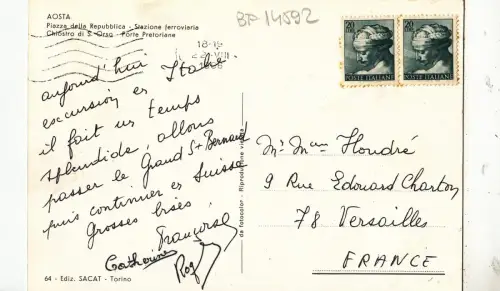 AOSTA
Piazza della Repubblica - Stazione ferroviaria
Chiostro di S. Orso - Porte Pretoriane
BF 14592
18-19
POSTE ITALIANE
POSTE ITALIANE
aujourd'hui
excursion en Italie.
il fait un temps
splendide, allons
passer le Grand St Bernard
puis continuer en Suisse
Grosses bises.
Françoise
Catherine
Rog
Mr Mme Houdré
9 Rue Edouard Charton
78 Versailles
FRANCE
da fotocolor - Riproduzione vietata
64 - Ediz. SACAT - Torino